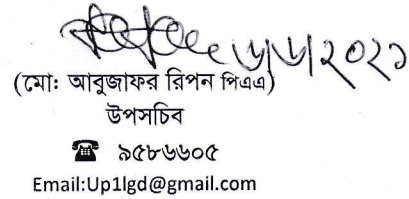 ৬/৬/২০২১
(মো: আবুজাফর রিপন পিএএ)
উপসচিব
☎ ৯৫৮৬৬০৫
Email:Up1lgd@gmail.com